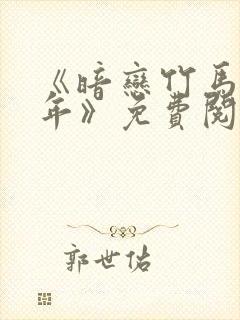 《暗戀竹馬
年》免費閱
郭世佑